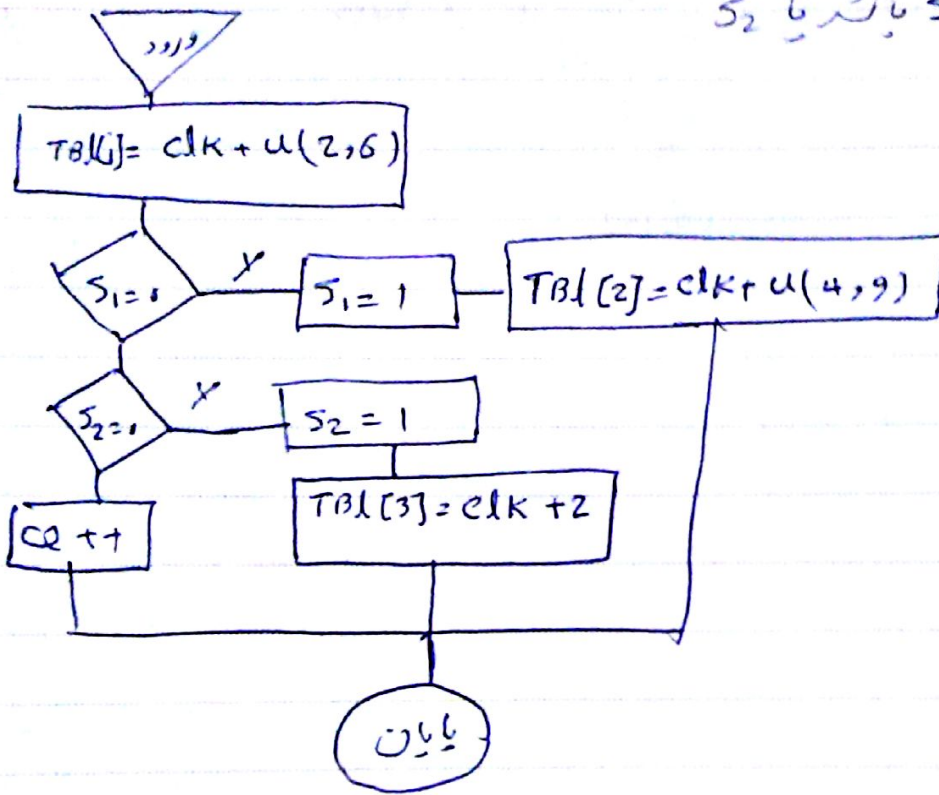 یا S2
ورود
TBl[i]= clk + u(2,6)
S1=0
Y
S1 = 1
TBl[2]=clk+ u(4,9)
S2=0
Y
S2 = 1
TBl[3]=clk +2
CQ ++
پایان